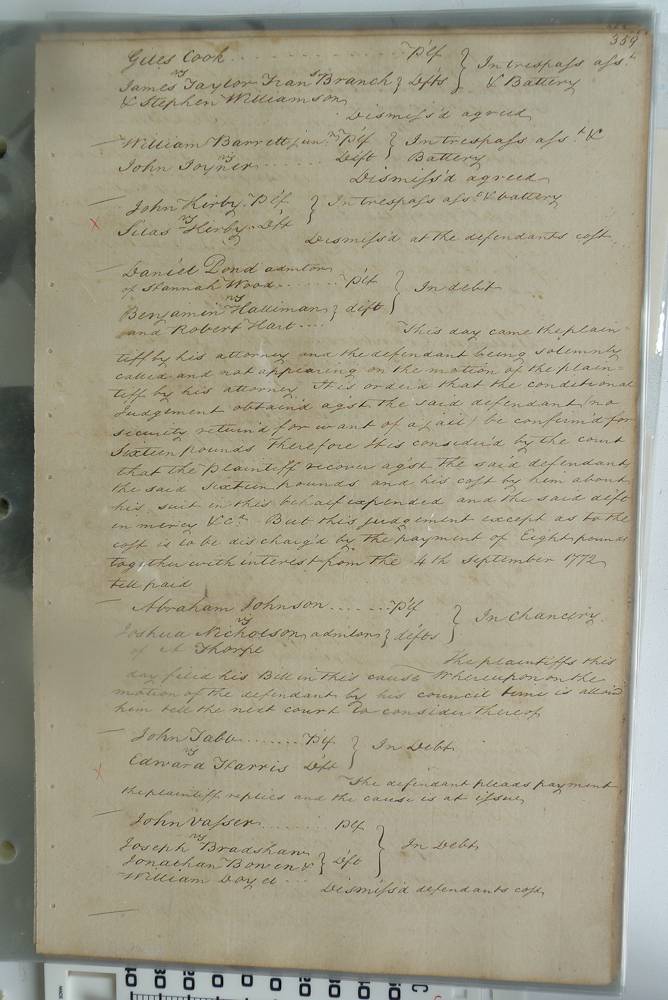 359
Giles Cook . . . . . . . . . . . . Plf } In trespass asst
vs
James Taylor Frans Branch } Defts & Battery
& Stephen Williamson
Dismiss'd agreed
William Barrett junr Plf } In trespass asst &
vs
John Joyner . . . . . . Deft Battery
Dismiss'd agreed
John Kirby Plf } In trespass asst & battery
vs
Silas Kirby Deft
Dismiss'd at the defendants cost
Daniel Pond admtor
of Hannah Wood . . . . . . Plf } In debt
vs
Benjamin Halliman } deft
and Robert Hart . . .
This day came the plain=
tiff by his attorney and the defendant being solemnly
called and not appearing on the motion of the plain=
tiff by his attorney It is order'd that the conditional
Judgement obtain'd agst the said defendant (no
security return'd for want of a jail) be confirm'd for
Sixteen pounds Therefore It is consider'd by the court
that the plaintiff recover agst the said defendant
the said Sixteen pounds and his cost by him about
his suit in this behalf expended and the said deft
in mercy &ca But this judgement except as to the
cost is to be discharg'd by the payment of Eight pounds
together with interest from the 4th September 1772
till paid
Abraham Johnson . . . . . . . Plf } In Chancery
vs
Joshua Nicholson admtor } defts
of A Thorpe
The plaintiffs this
day filed his Bill in this cause Whereupon on the
motion of the defendant by his council time is allow'd
him till the next court to consider thereof
John Tabb . . . . . . . Plf } In Debt
vs
Edward Harris Deft
The defendant pleads payment
the plaintiff replies and the cause is at issue
John Vasser . . . . . . . . Plf } In Debt
vs
Joseph Bradshaw
Jonathan Bowen & } Deft
William Doyel . . .
Dismiss'd defendants cost